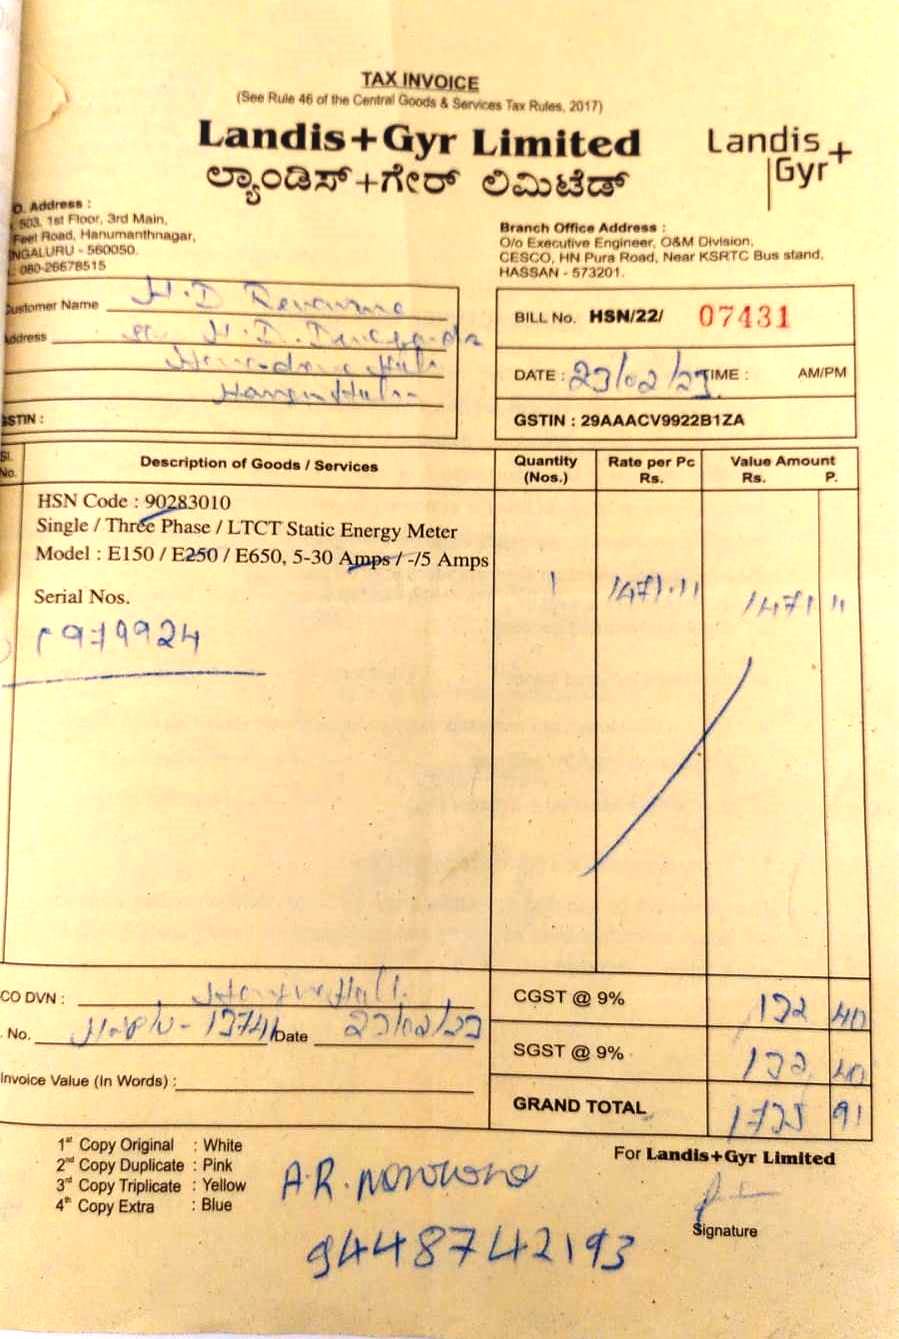 TAX INVOICE
(See Rule 46 of the Central Goods & Services Tax Rules, 2017)
Landis+Gyr Limited
ಲ್ಯಾಂಡಿಸ್+ಗೇರ್ ಲಿಮಿಟೆಡ್
Landis+
Gyr
Address :
503, 1st Floor, 3rd Main,
Feet Road, Hanumanthnagar,
NGALURU - 560050.
080-26678515
Branch Office Address :
O/o Executive Engineer, O&M Division,
CESCO, HN Pura Road, Near KSRTC Bus stand,
HASSAN - 573201.
Customer Name H.D
Address
GSTIN :
BILL No. HSN/22/ 07431
DATE : 23/02/23 TIME : AM/PM
GSTIN : 29AAACV9922B1ZA
Sl. No. Description of Goods / Services Quantity (Nos.) Rate per Pc Rs. Value Amount Rs. P.
HSN Code : 90283010
Single / Three Phase / LTCT Static Energy Meter
Model : E150 / E250 / E650, 5-30 Amps / -/5 Amps
1 1471.11 1471 11
Serial Nos.
CO DVN :
No. Date 23/02/23
Invoice Value (In Words) :
CGST @ 9% 132 40
SGST @ 9% 132 40
GRAND TOTAL 1735 91
1st Copy Original : White
2nd Copy Duplicate : Pink
3rd Copy Triplicate : Yellow
4th Copy Extra : Blue
For Landis+Gyr Limited
Signature
A.R.
9448742193